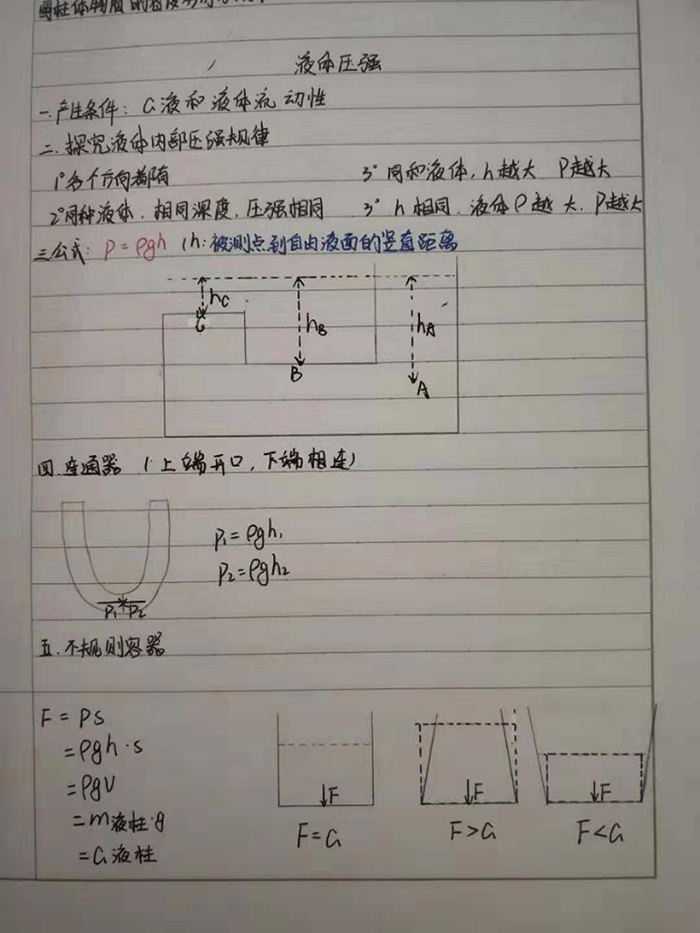 液体压强
一.产生条件: G液和液体流动性
二.探究液体内部压强规律
1°各个方向都有 3°同和液体, h越大 P越大
2°同种液体.相同深度.压强相同 3° h相同.液体ρ越大, P越大
三公式: P=ρgh (h:被测点到自由液面的竖直距离
hC
C
hB
B
hA
A
四.连通器 (上端开口,下端相连)
P₁=ρgh₁
P₂=ρgh₂
P₁ P₂
五.不规则容器
F=PS
=ρgh·s
=ρgV
=m液柱·g
=G液柱
F F F
F=G F>G F<G